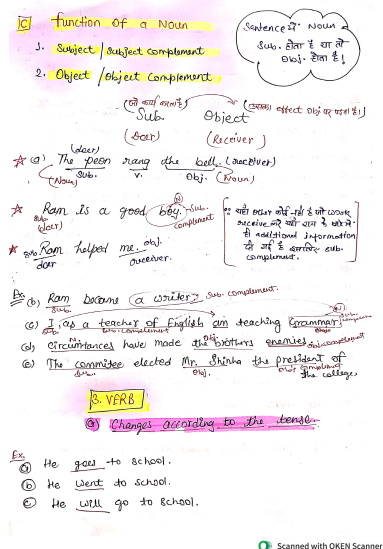 C function of a Noun
1. Subject / Subject complement
2. Object / Object complement
Sentence में Noun
Sub. होता है या तो
Obj. होता है!
(जो कार्य करता है) (उसका effect obj पर पड़ता है।)
Sub. Object
(Doer) (Receiver)
(doer)
(a) The peon rang the bell. (receiver)
(Noun) Sub. V. Obj. (Noun)
Ram is a good boy. (N) Sub. complement
Sub. (doer)
Ram helped me. obj.
Sub. doer receiver.
additional information
sub.
complement.
Ex.
(b) Ram became a writer. Sub. complement.
Sub.
(c) I, as a teacher of English am teaching Grammar.
(d) Circumtances have made the brothers enemies.
(e) The commitee elected Mr. Shinha the president of
the college.
Sub. Obj.
3. VERB
(a) Changes according to the tense.
Ex.
(a) He goes to school.
(b) He went to school.
(c) He will go to school.
Scanned with OKEN Scanner